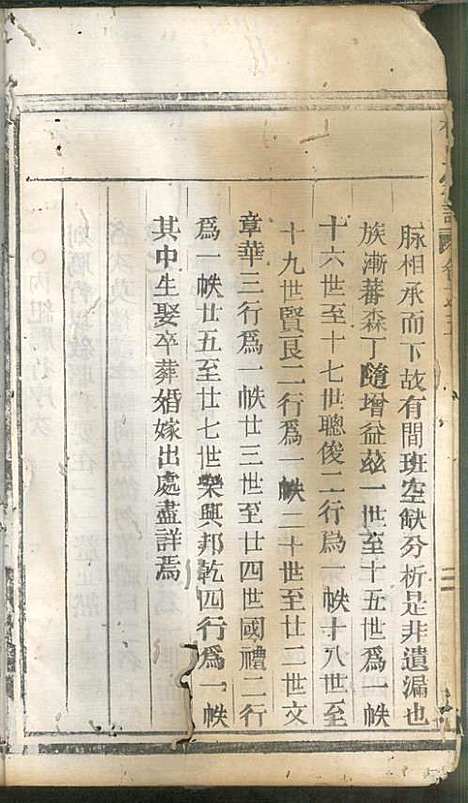 脉相承而下故有間班空缺分析是非遺漏也
族漸蕃森丁隨增益茲一世至十五世爲一帙
十六世至十七世聰俊二行爲一帙十八世至
十九世賢良二行爲一帙二十世至廿二世文
章華三行爲一帙廿三世至廿四世國禮二行
爲一帙廿五至廿七世榮興邦乾四行爲一帙
其中生娶卒葬婚嫁出處盡詳焉